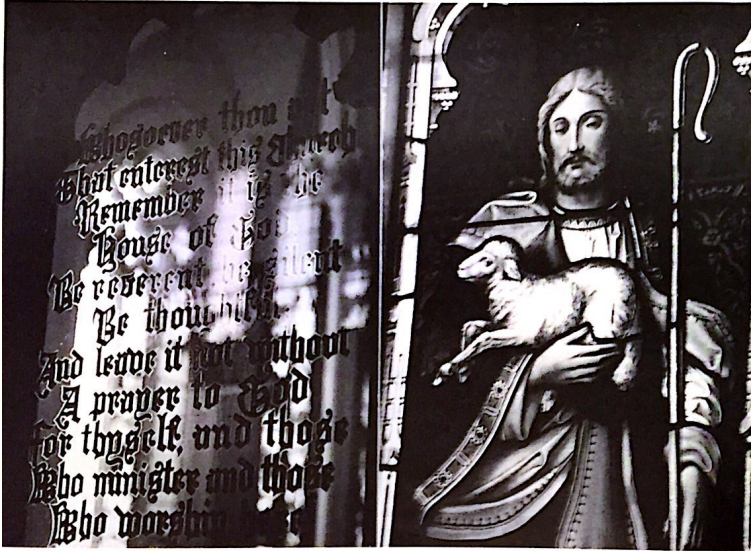 Whosoever thou art
That enterest this Church
Remember it is the
House of God
Be reverent, be silent
Be thoughtful
And leave it not without
A prayer to God
For thyself, and those
Who minister and those
Who worship here